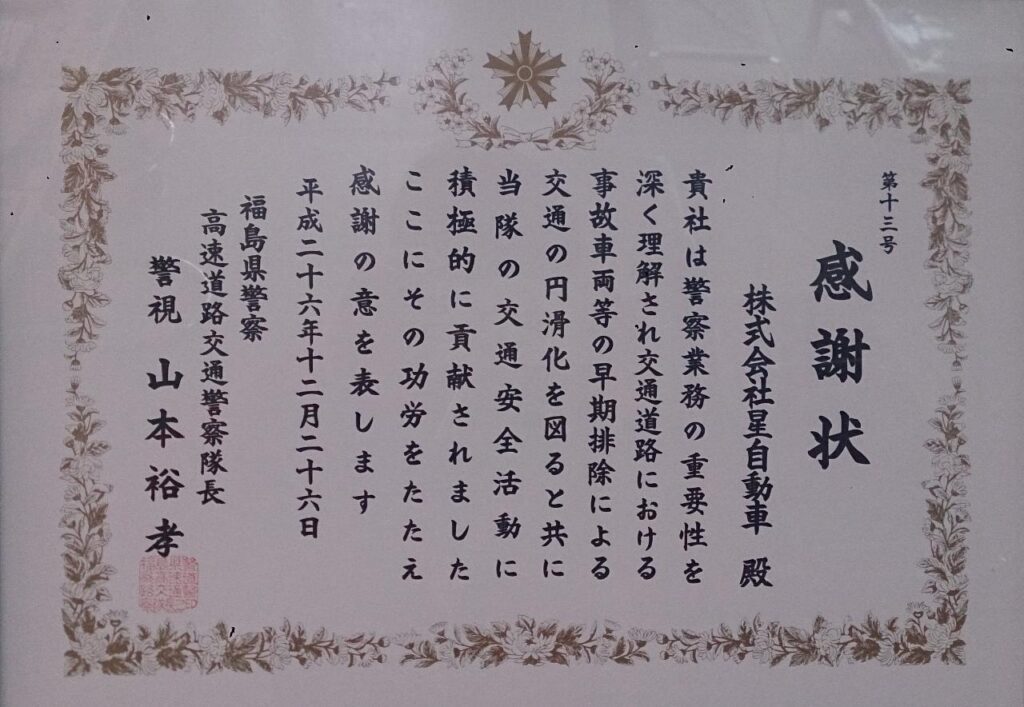 第十三号
感謝状
株式会社星自動車 殿
貴社は警察業務の重要性を
深く理解され交通道路における
事故車両等の早期排除による
交通の円滑化を図ると共に
当隊の交通安全活動に
積極的に貢献されました
ここにその功労をたたえ
感謝の意を表します
平成二十六年十二月二十六日
福島県警察
高速道路交通警察隊長
警視 山本裕孝